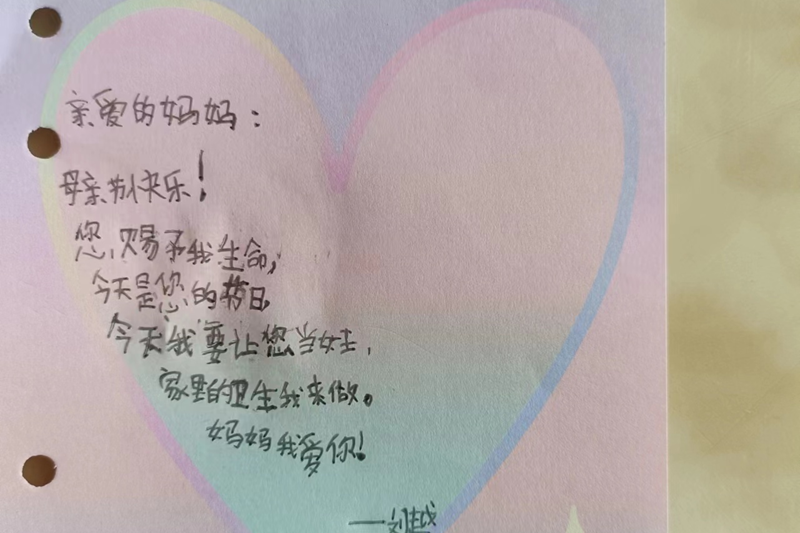 亲爱的妈妈：
母亲节快乐！
您,赐予我生命,
今天是您的节日
今天我要让您当女王,
家里的卫生我来做。
妈妈我爱你!
——刘越